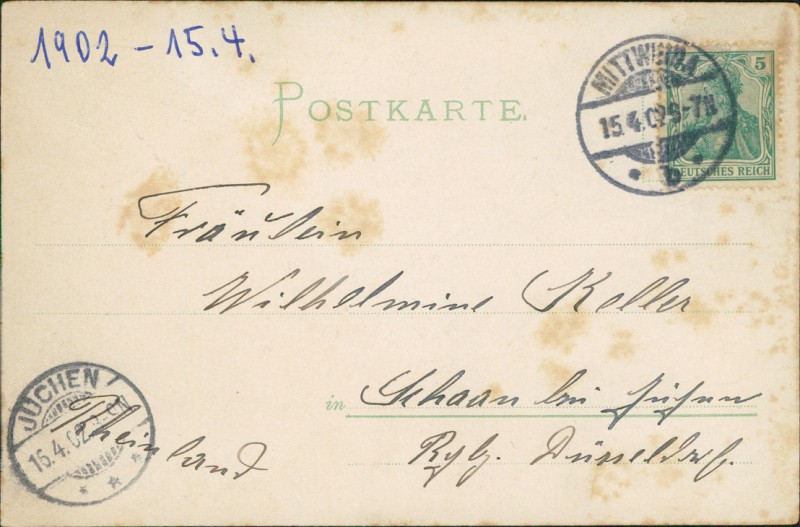 1902 - 15.4.
POSTKARTE.
MITTWEIDA
15.4.02. 6-7N
b
5
DEUTSCHES REICH
Fräulein
Wilhelmine Koller
in Schaan bei Jüchen
Rgbz. Düsseldorf.
Rheinland
JÜCHEN
16.4.02.